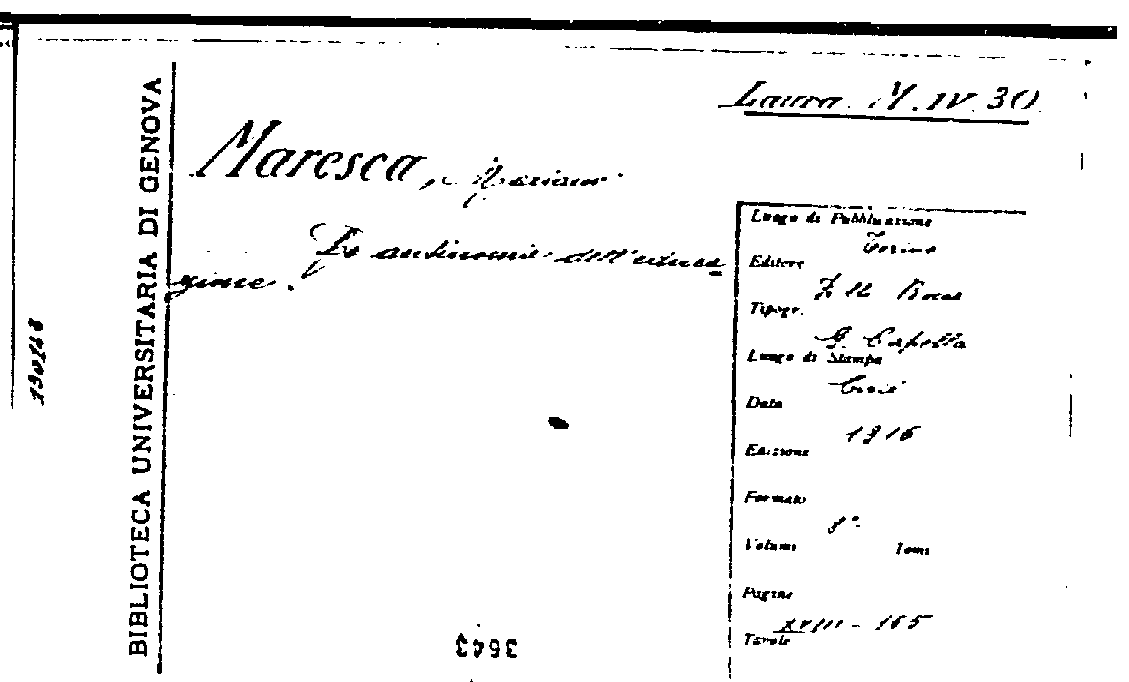 Laura. M. IV. 30
Maresca, Mariano
Le antinomie dell'educa
zione.
BIBLIOTECA UNIVERSITARIA DI GENOVA
Luogo di Pubblicazione
Torino
Editore
F.lli Bocca
Tipogr.
G. Capella
Luogo di Stampa
Ciriè
Data
1916
Edizione
Formato
8°
Volumi Tomi
Pagine
XVIII - 165
Tavole
3643